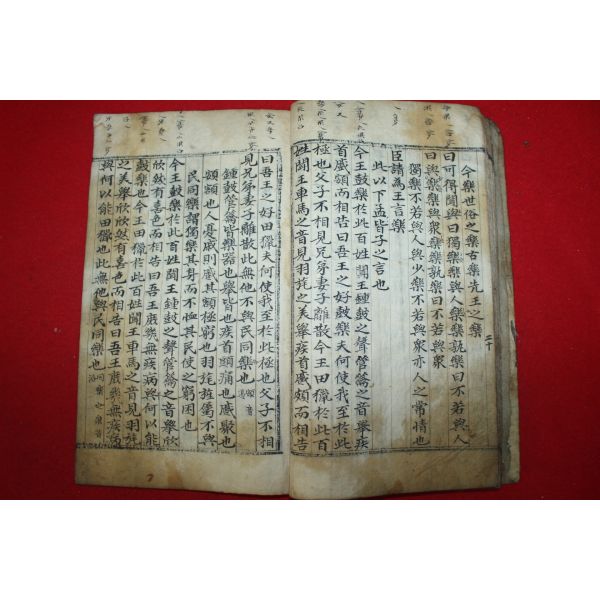 今樂世俗之樂古樂先王之樂
曰可得聞與曰獨樂樂與人樂樂孰樂曰不若與人
曰與少樂樂與衆樂樂孰樂曰不若與衆
獨樂不若與人與少樂不若與衆亦人之常情也
臣請為王言樂
此以下皆孟子之言也
今王鼓樂於此百姓聞王鍾鼓之聲管籥之音舉疾
首蹙頞而相告曰吾王之好鼓樂夫何使我至於此
極也父子不相見兄弟妻子離散今王田獵於此百
姓聞王車馬之音見羽旄之美舉疾首蹙頞而相告
曰吾王之好田獵夫何使我至於此極也父子不相
見兄弟妻子離散此無他不與民同樂也
鍾鼓管籥皆樂器也舉皆也疾首頭痛也蹙聚也
頞額也人憂戚則蹙其額極窮也羽旄旌屬不與
民同樂謂獨樂其身而不恤其民使之窮困也
今王鼓樂於此百姓聞王鍾鼓之聲管籥之音舉欣
欣然有喜色而相告曰吾王庶幾無疾病與何以能
鼓樂也今王田獵於此百姓聞王車馬之音見羽旄
之美舉欣欣然有喜色而相告曰吾王庶幾無疾病
與何以能田獵也此無他與民同樂也